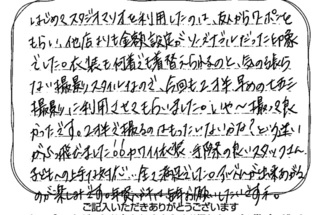 はじめてスタジオマリオを利用したのは、友人からクーポンを
もらい、他店よりも金額設定がリーズナブルだった印象
でした。衣装も何着でも着替えられるのと、気の張ら
ない撮影スタイルなので、今回も2才半 早めの七五三
撮影に利用させてもらいました。いや〜撮って良
かったです。2才半で撮るのはもったいないかな?という迷い
がふっ飛びました!!カワイイ衣装、手際の良いスタッフさん、
子どもへの上手な対応…全て満足でした。
が楽しみです。
ご記入いただきありがとうございます